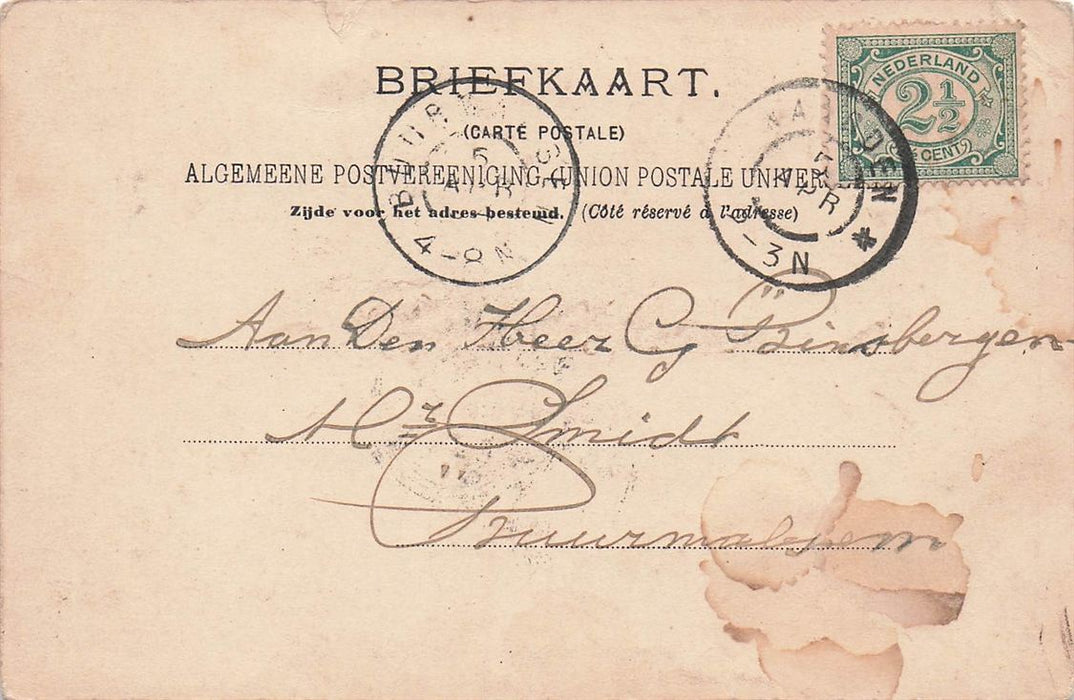 BRIEFKAART.
(CARTE POSTALE)
ALGEMEENE POSTVEREENIGING (UNION POSTALE UNIVER
Zijde voor het adres bestemd. (Côté réservé à l'adresse)
NEDERLAND
2½
CENT
5
4-8N
-3N
Aan Den Heer G Binsbergen
Mr Smidt
Buurmalsem